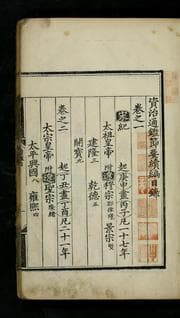 資治通鑑節要續編目錄
卷之一
宋紀
起庚申盡丙子凡一十七年
太祖皇帝 附 穆宗 景宗
建隆三 乾德五
開寶九
卷之二
起丁丑盡丁酉凡二十一年
太宗皇帝 附 聖宗
太平興國八 雍熙四